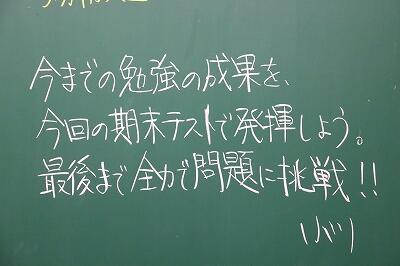 今までの勉強の成果を、
今回の期末テストで発揮しよう。
最後まで全力で問題に挑戦!!